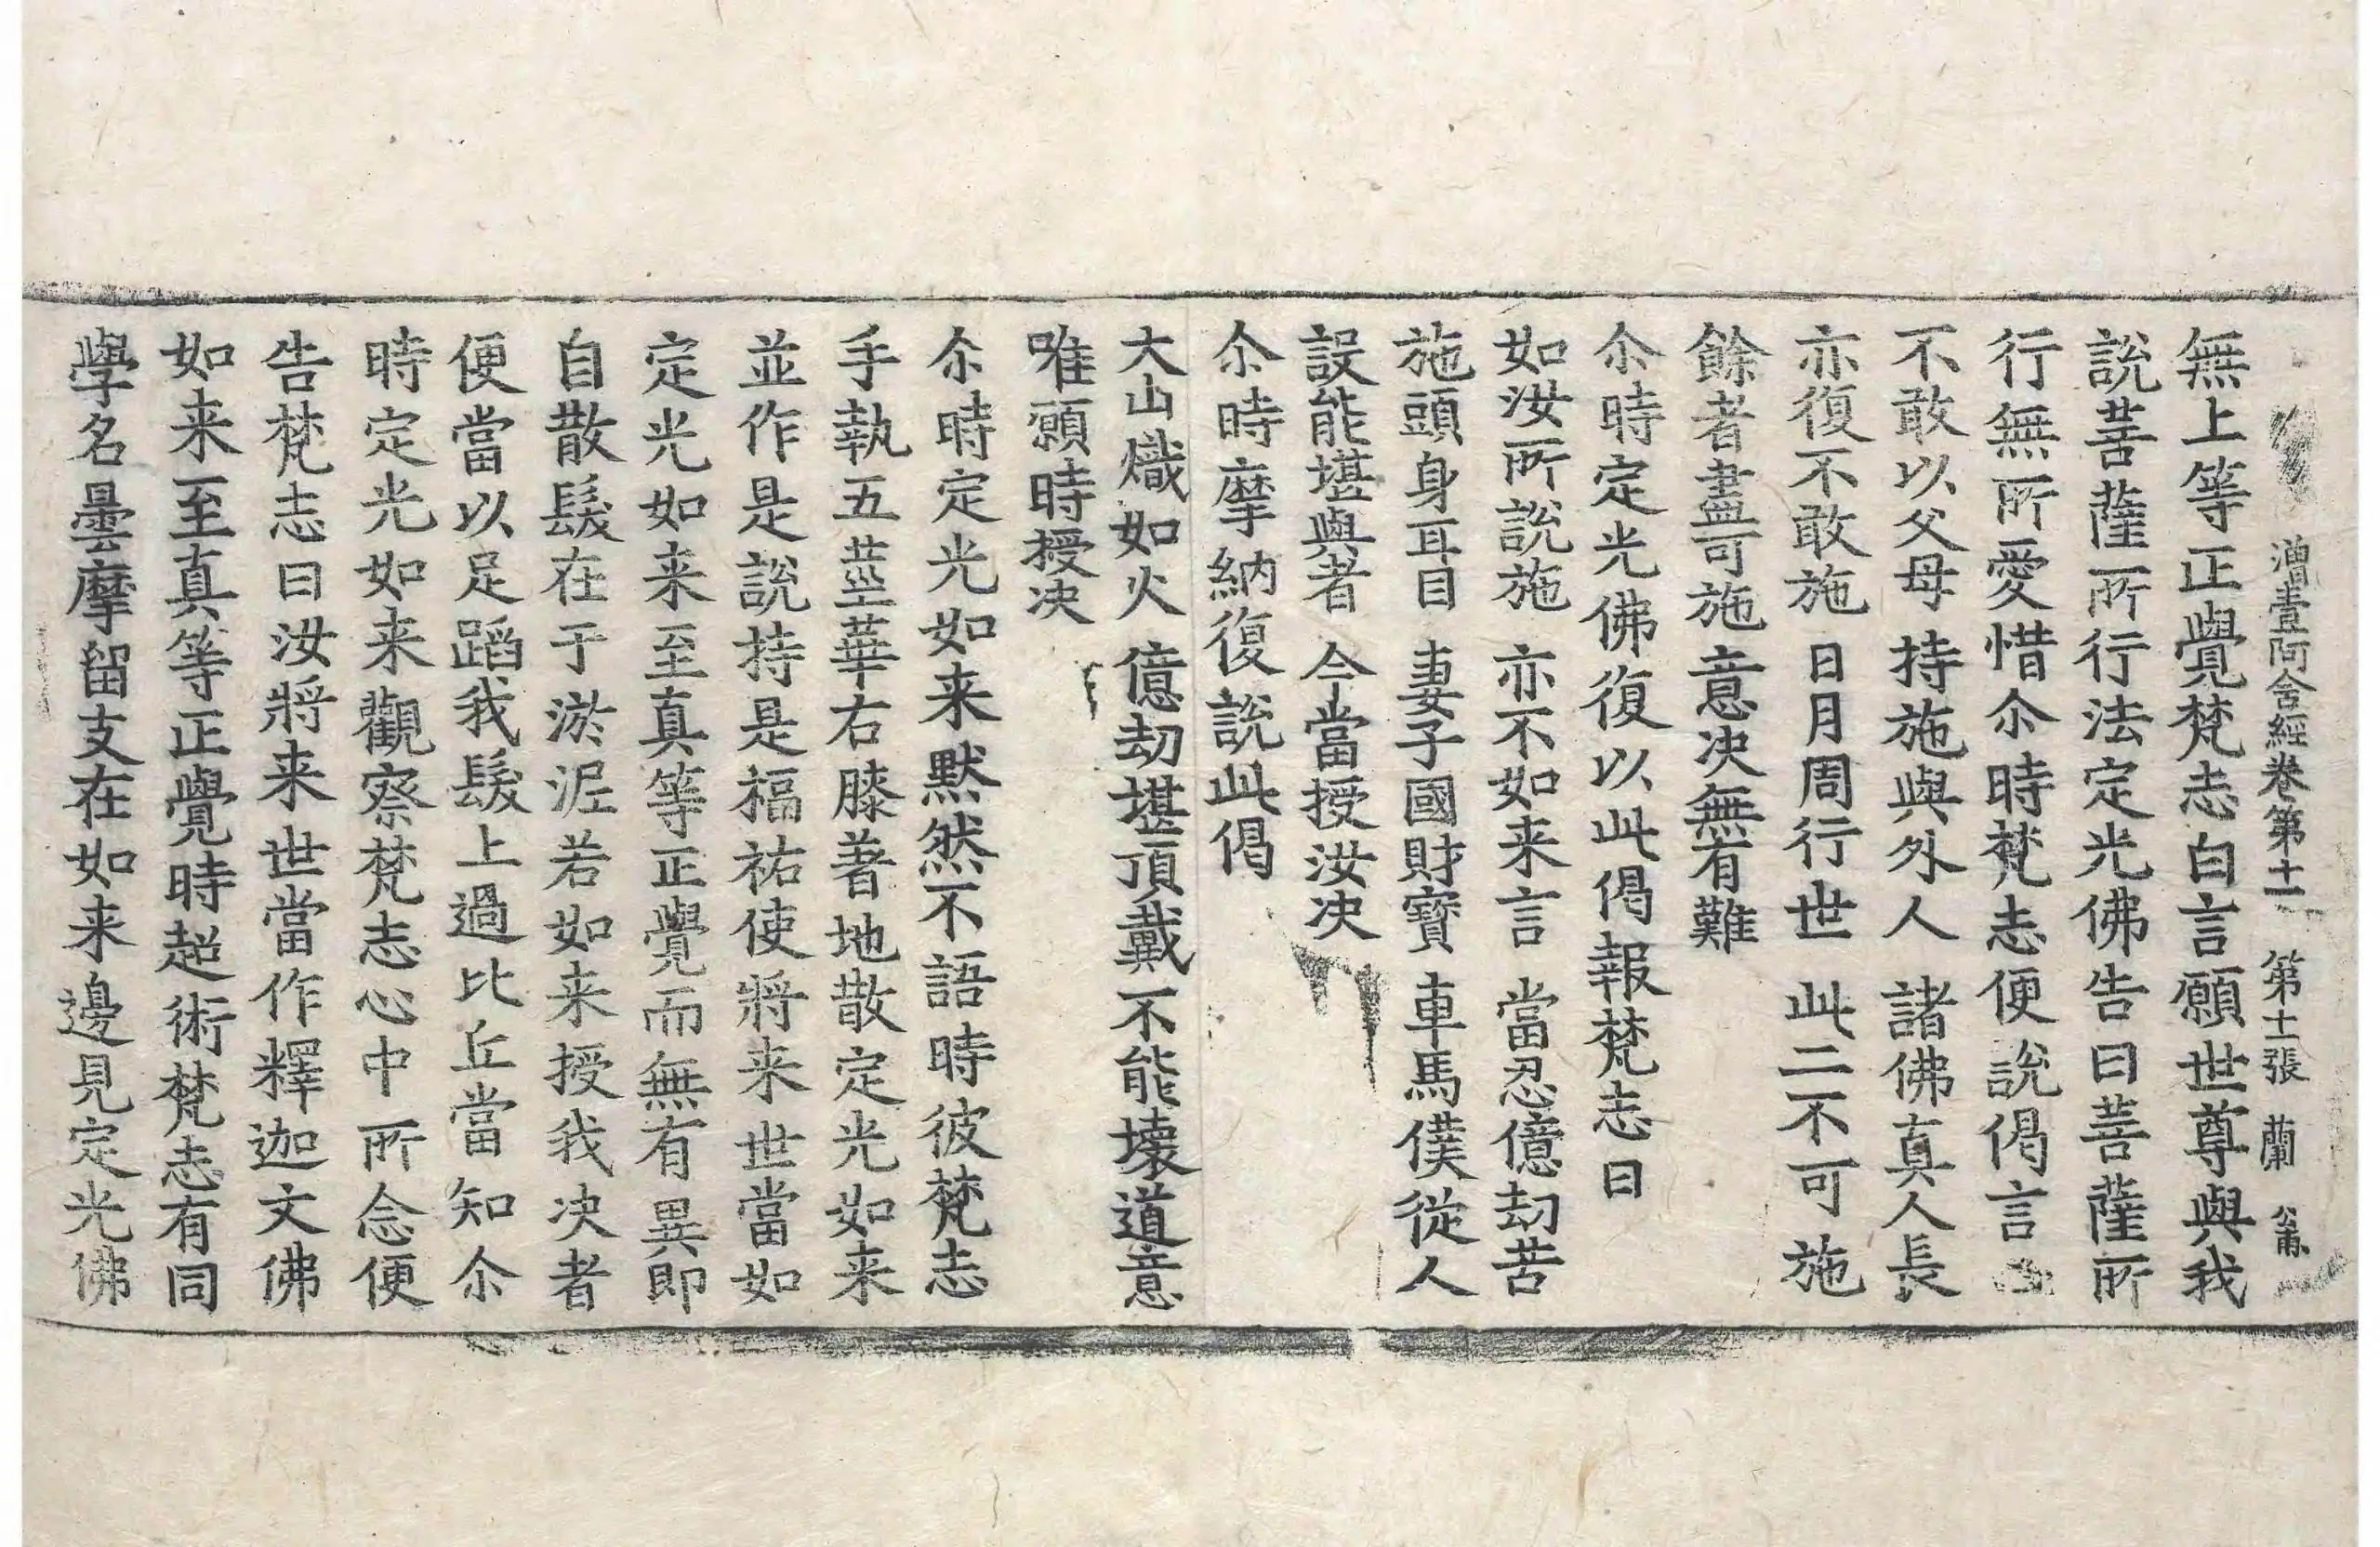 增壹阿含經卷第十一 第十二張 蘭
無上等正覺梵志白言願世尊與我
說菩薩所行法定光佛告曰菩薩所
行無所愛惜尒時梵志便說偈言
不敢以父母 持施與外人 諸佛真人長
亦復不敢施 日月周行世 此二不可施
餘者盡可施 意決無有難
尒時定光佛復以此偈報梵志曰
如汝所說施 亦不如来言 當忍億劫苦
施頭身耳目 妻子國財寶 車馬僕從人
設能堪與者 今當授汝决
尒時摩納復說此偈
大山熾如火 億劫堪頂戴 不能壞道意
唯願時授决
尒時定光如来默然不語時彼梵志
手執五莖華右膝著地散定光如来
並作是說持是福祐使將来世當如
定光如来至真等正覺而無有異即
自散髮在于淤泥若如来授我决者
便當以足蹈我髮上過比丘當知尒
時定光如来觀察梵志心中所念便
告梵志曰汝將来世當作釋迦文佛
如来至真等正覺時超術梵志有同
學名曇摩留支在如来邊見定光佛